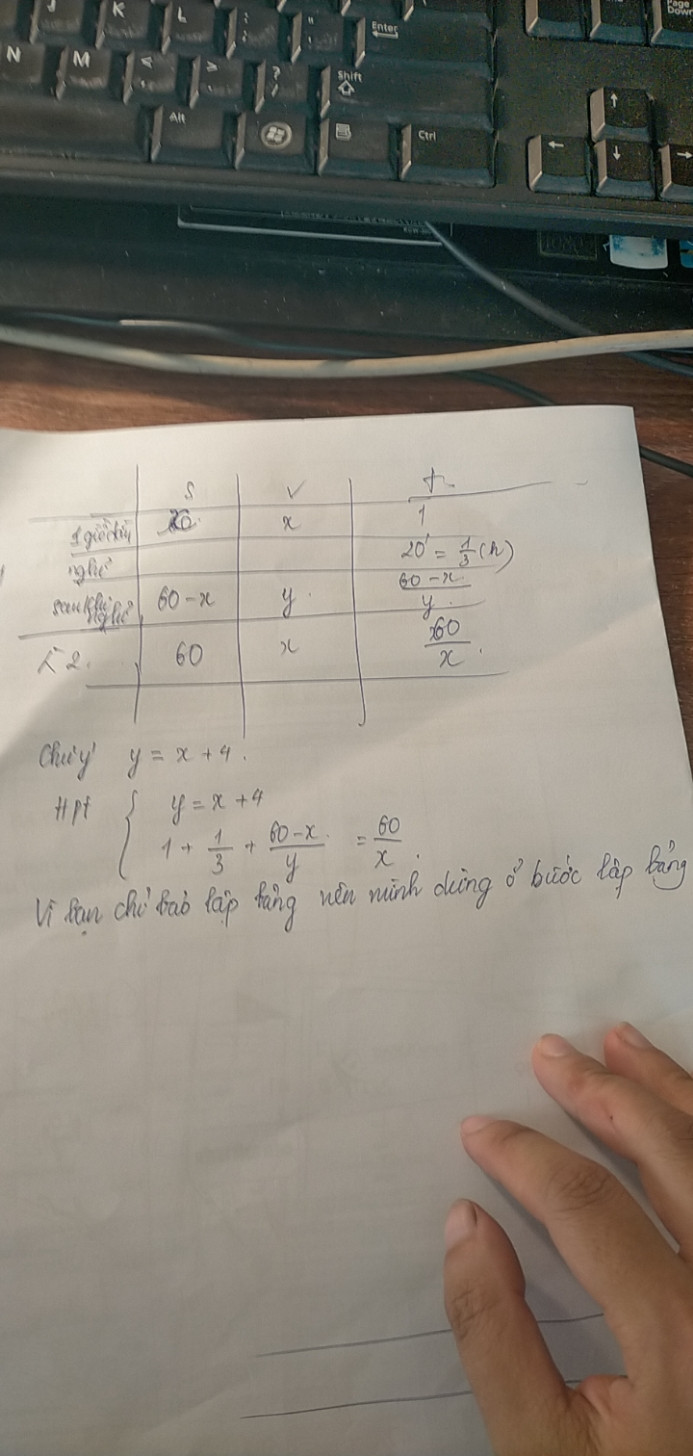 J K L : ; " ' Enter
N M < , > . ? / Shift
Alt Ctrl
Page Down
S V t
1 giờ đầu x 1
nghỉ 20' = 1/3 (h)
sau khi nghỉ 60 - x y (60 - x)/y
L2. 60 x 60/x.
Chú ý y = x + 4.
Hpt { y = x + 4
1 + 1/3 + (60 - x)/y = 60/x.
Vì bạn chỉ bảo lập bảng nên mình dừng ở bước lập bảng